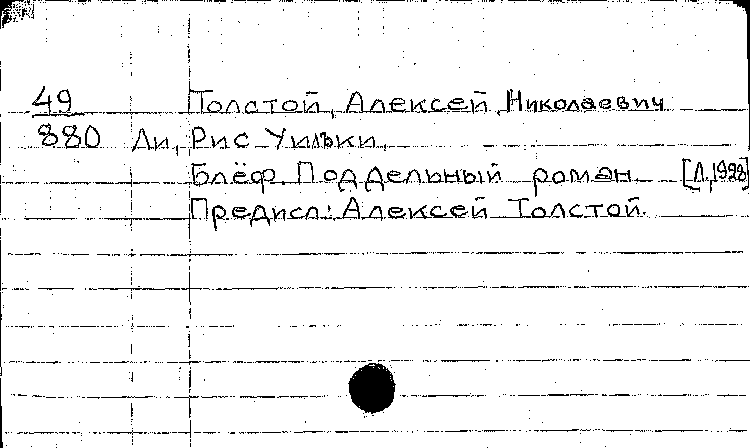 49 Толстой, Алексей Николаевич
880 Ли, Рис Уильки.
Блёф. Поддельный роман. [Л., 1928]
Предисл.: Алексей Толстой.